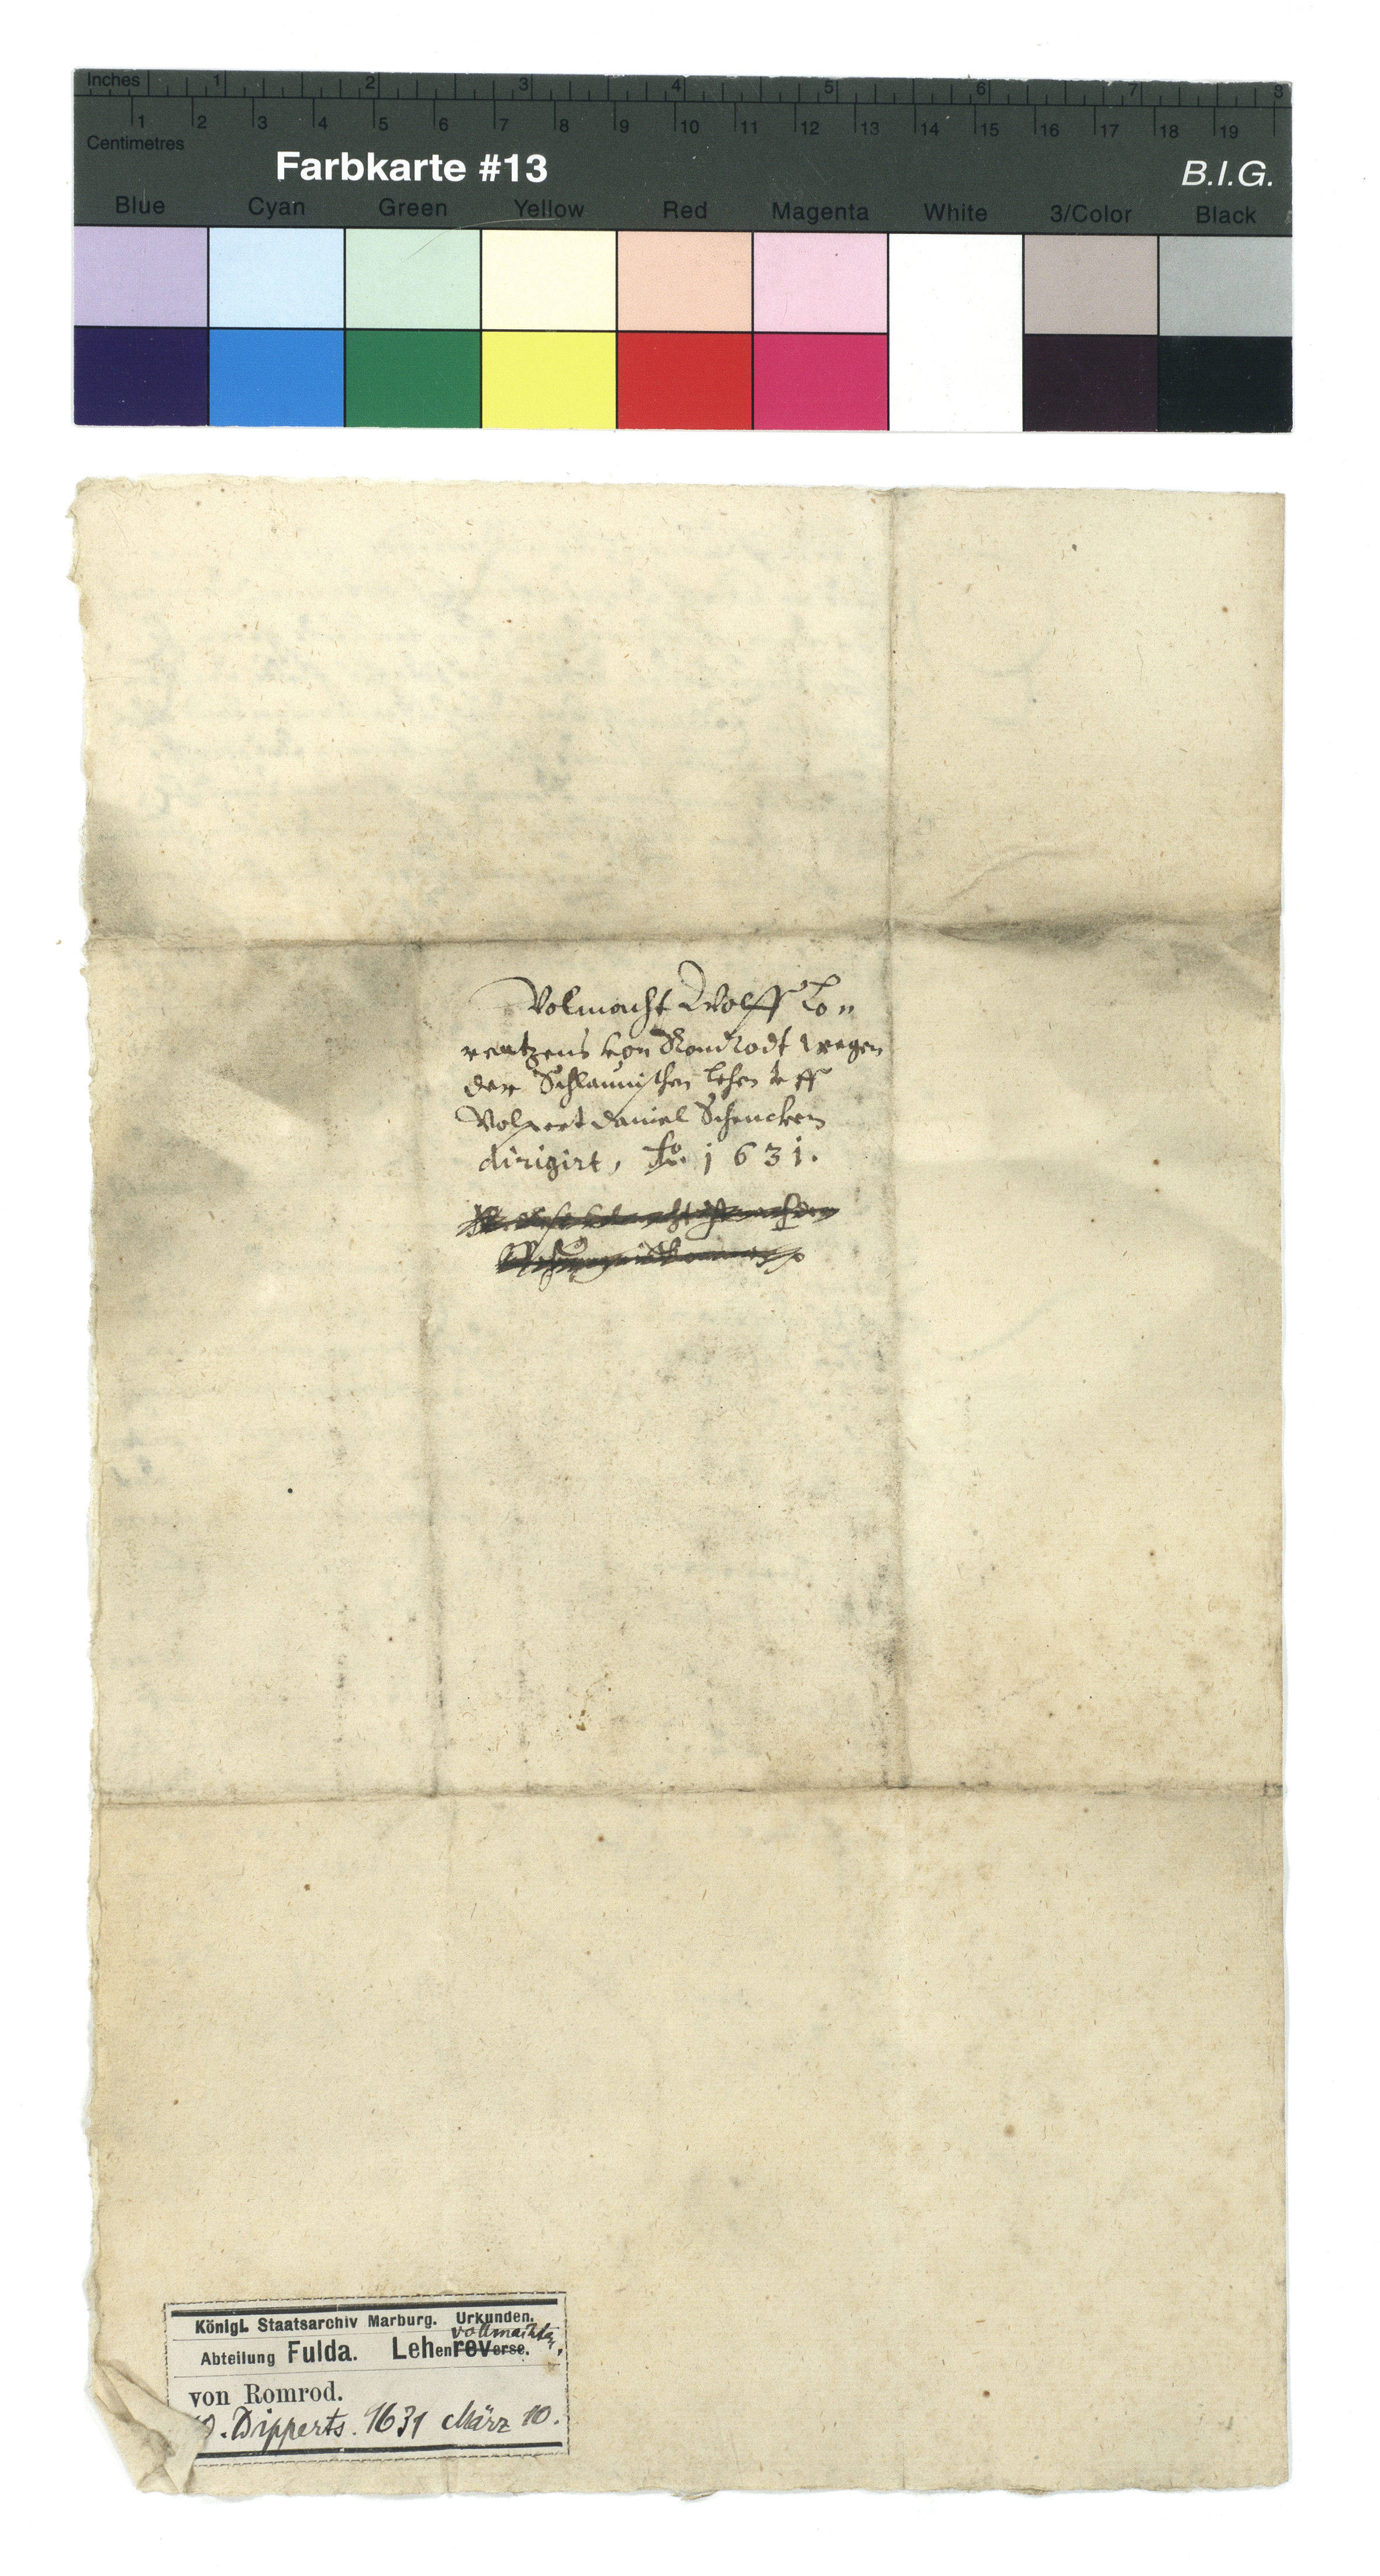 Inches 1 2 3 4 5 6 7 8
1 2 3 4 5 6 7 8 9 10 11 12 13 14 15 16 17 18 19
Centimetres
Farbkarte #13 B.I.G.
Blue Cyan Green Yellow Red Magenta White 3/Color Black
Volmacht Wolff Lo„
rentzens von Romrodt wegen
der lehen vff
Volpert Daniel Schencken
dirigirt, 1631.
Königl. Staatsarchiv Marburg. Urkunden.
vollmachten,
Abteilung Fulda. Lehenreverse.
von Romrod.
Dipperts. 1631 März 10.